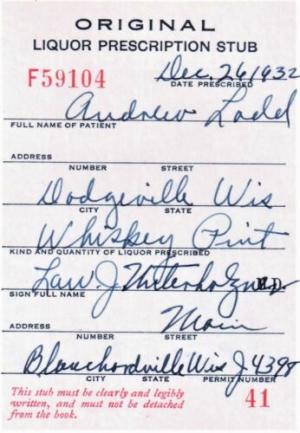 ORIGINAL
LIQUOR PRESCRIPTION STUB
F59104 Dec. 26 1932
DATE PRESCRIBED
Andrew Ladd
FULL NAME OF PATIENT
ADDRESS
NUMBER STREET
Dodgeville Wis
CITY STATE
Whiskey Pint
KIND AND QUANTITY OF LIQUOR PRESCRIBED
M.D.
SIGN FULL NAME
Main
ADDRESS
NUMBER STREET
Blanchardville Wis J4398
CITY STATE PERMIT NUMBER
This stub must be clearly and legibly
written, and must not be detached
from the book.
41